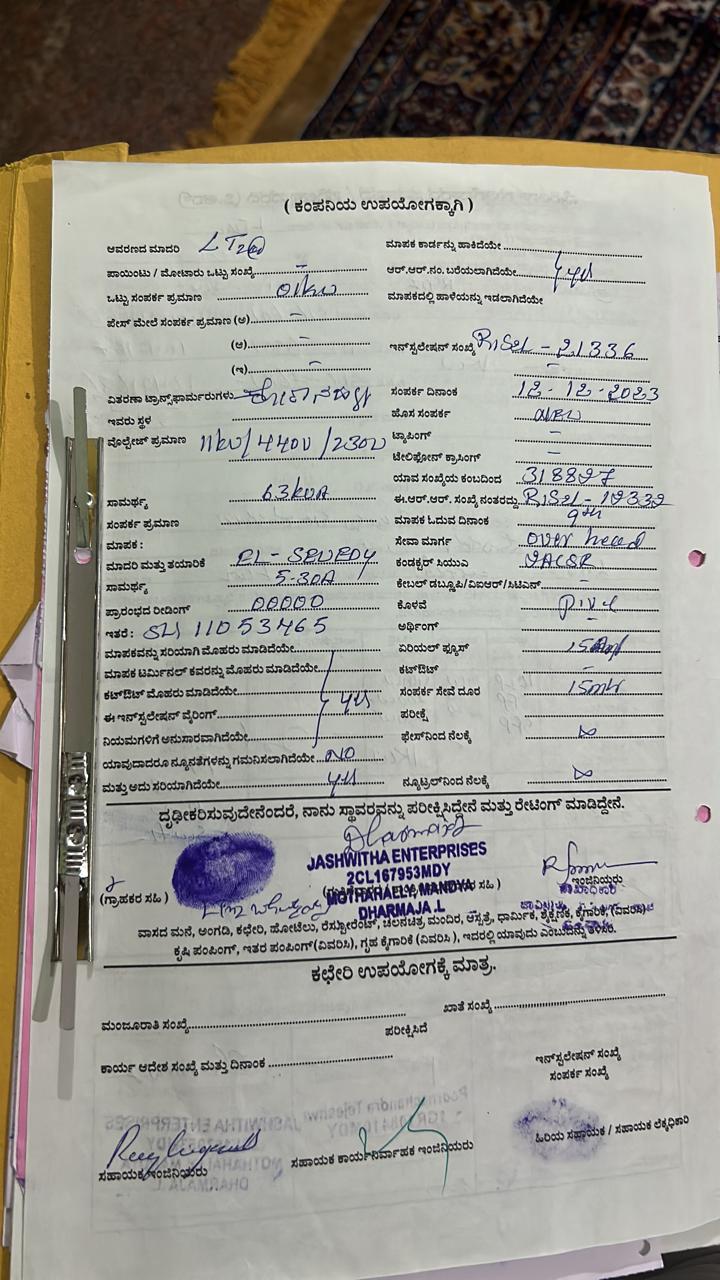 ( ಕಂಪನಿಯ ಉಪಯೋಗಕ್ಕಾಗಿ )
ಆವರಣದ ಮಾದರಿ LT2@
ಮಾಪಕ ಕಾರ್ಡನ್ನು ಹಾಕಿದೆಯೇ
ಪಾಯಿಂಟು / ಮೋಟಾರು ಒಟ್ಟು ಸಂಖ್ಯೆ –
ಆರ್.ಆರ್.ನಂ. ಬರೆಯಲಾಗಿದೆಯೇ yes
ಒಟ್ಟು ಸಂಪರ್ಕ ಪ್ರಮಾಣ 01kw
ಮಾಪಕದಲ್ಲಿ ಹಾಳೆಯನ್ನು ಇಡಲಾಗಿದೆಯೇ
ಫೇಸ್ ಮೇಲೆ ಸಂಪರ್ಕ ಪ್ರಮಾಣ (ಅ) –
(ಆ) –
ಇನ್‌ಸ್ಟಲೇಷನ್ ಸಂಖ್ಯೆ – 21336
(ಇ) –
ವಿತರಣಾ ಟ್ರಾನ್ಸ್‌ಫಾರ್ಮರುಗಳು
ಸಂಪರ್ಕ ದಿನಾಂಕ 12-12-2023
ಇವರು ಸ್ಥಳ
ಹೊಸ ಸಂಪರ್ಕ NEW
ವೋಲ್ಟೇಜ್ ಪ್ರಮಾಣ 11kv/440v/230v
ಟ್ಯಾಪಿಂಗ್ –
ಟೆಲಿಫೋನ್ ಕ್ರಾಸಿಂಗ್ –
ಯಾವ ಸಂಖ್ಯೆಯ ಕಂಬದಿಂದ 318897
ಸಾಮರ್ಥ್ಯ 63kVA
ಈ.ಆರ್.ಆರ್. ಸಂಖ್ಯೆ ನಂತರದ್ದು
ಸಂಪರ್ಕ ಪ್ರಮಾಣ
ಮಾಪಕ ಓದುವ ದಿನಾಂಕ 9th
ಮಾಪಕ :
ಸೇವಾ ಮಾರ್ಗ over head
ಮಾದರಿ ಮತ್ತು ತಯಾರಿಕೆ
ಕಂಡಕ್ಟರ್ ಸಿಯುಎ
ಸಾಮರ್ಥ್ಯ 5-30A
ಕೇಬಲ್ ಡಬ್ಲೂಪಿ/ವಿಐಆರ್/ಸಿಟಿಎಸ್ –
ಪ್ರಾರಂಭದ ರೀಡಿಂಗ್ 00000
ಕೊಳವೆ
ಇತರೆ : SLN 11053465
ಅರ್ಥಿಂಗ್ –
ಮಾಪಕವನ್ನು ಸರಿಯಾಗಿ ಮೊಹರು ಮಾಡಿದೆಯೇ
ಏರಿಯಲ್ ಫ್ಯೂಸ್ 15Amp
ಮಾಪಕ ಟರ್ಮಿನಲ್ ಕವರನ್ನು ಮೊಹರು ಮಾಡಿದೆಯೇ
ಕಟ್‌ಔಟ್ –
ಕಟ್‌ಔಟ್ ಮೊಹರು ಮಾಡಿದೆಯೇ yes
ಸಂಪರ್ಕ ಸೇವೆ ದೂರ 15mtr
ಈ ಇನ್‌ಸ್ಟಲೇಷನ್ ವೈರಿಂಗ್
ಪರೀಕ್ಷೆ
ನಿಯಮಗಳಿಗೆ ಅನುಸಾರವಾಗಿದೆಯೇ
ಫೇಸ್‌ನಿಂದ ನೆಲಕ್ಕೆ ∞
ಯಾವುದಾದರೂ ನ್ಯೂನತೆಗಳನ್ನು ಗಮನಿಸಲಾಗಿದೆಯೇ NO
ಮತ್ತು ಅದು ಸರಿಯಾಗಿದೆಯೇ yes
ನ್ಯೂಟ್ರಲ್‌ನಿಂದ ನೆಲಕ್ಕೆ ∞
ದೃಢೀಕರಿಸುವುದೇನೆಂದರೆ, ನಾನು ಸ್ಥಾವರವನ್ನು ಪರೀಕ್ಷಿಸಿದ್ದೇನೆ ಮತ್ತು ರೇಟಿಂಗ್ ಮಾಡಿದ್ದೇನೆ.
JASHWITHA ENTERPRISES
2CL167953MDY
MOTHAHALLI, MANDYA
DHARMAJA .L
(ಗ್ರಾಹಕರ ಸಹಿ )
ಇಂಜಿನಿಯರು
ವಾಸದ ಮನೆ, ಅಂಗಡಿ, ಕಛೇರಿ, ಹೋಟೆಲು, ರೆಸ್ಟೋರೆಂಟ್, ಚಲನಚಿತ್ರ, ಮಂದಿರ, ಆಸ್ಪತ್ರೆ, ಧಾರ್ಮಿಕ, ಶೈಕ್ಷಣಿಕ, ಕೈಗಾರಿಕೆ, (ವಿವರಿಸಿ)
ಕೃಷಿ ಪಂಪಿಂಗ್, ಇತರ ಪಂಪಿಂಗ್(ವಿವರಿಸಿ), ಗೃಹ ಕೈಗಾರಿಕೆ (ವಿವರಿಸಿ ), ಇದರಲ್ಲಿ ಯಾವುದು ಎಂಬುದನ್ನು ತಿಳಿಸಿರಿ.
ಕಛೇರಿ ಉಪಯೋಗಕ್ಕೆ ಮಾತ್ರ.
ಮಂಜೂರಾತಿ ಸಂಖ್ಯೆ
ಖಾತೆ ಸಂಖ್ಯೆ
ಪರೀಕ್ಷಿಸಿದೆ
ಕಾರ್ಯ ಆದೇಶ ಸಂಖ್ಯೆ ಮತ್ತು ದಿನಾಂಕ
ಇನ್‌ಸ್ಟಲೇಷನ್ ಸಂಖ್ಯೆ
ಸಂಪರ್ಕ ಸಂಖ್ಯೆ
ಸಹಾಯಕ ಇಂಜಿನಿಯರು
ಸಹಾಯಕ ಕಾರ್ಯನಿರ್ವಾಹಕ ಇಂಜಿನಿಯರು
ಹಿರಿಯ ಸಹಾಯಕ / ಸಹಾಯಕ ಲೆಕ್ಕಾಧಿಕಾರಿ